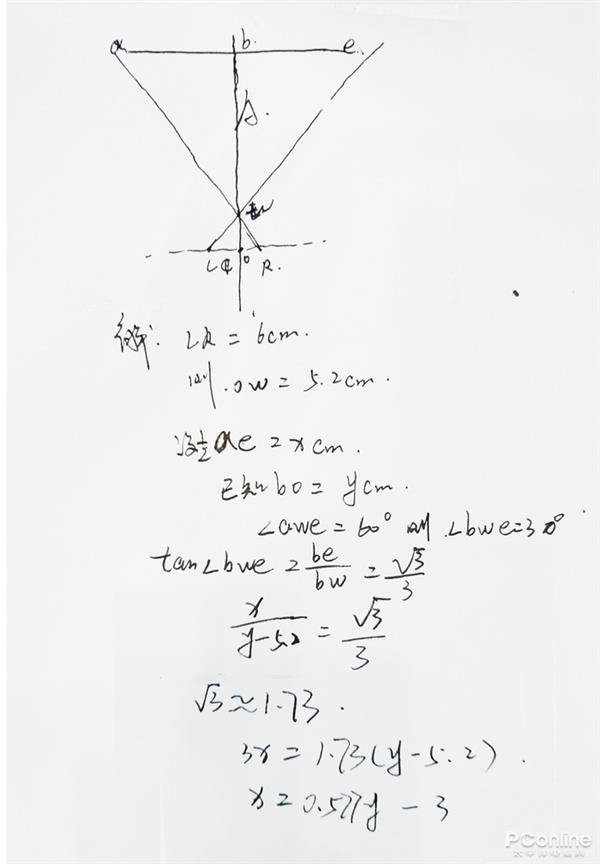 a b. e
y.
w
L 0 R.
解: LR = 6cm.
则. ow = 5.2cm.
设ae = x cm.
已知bo = ycm.
∠awe = 60° 则 ∠bwe = 30°
tan∠bwe = be/bw = √3/3
x/(y-5.2) = √3/3
√3 ≈ 1.73.
3x = 1.73(y-5.2).
x = 0.577y - 3
PConline
太平洋电脑网